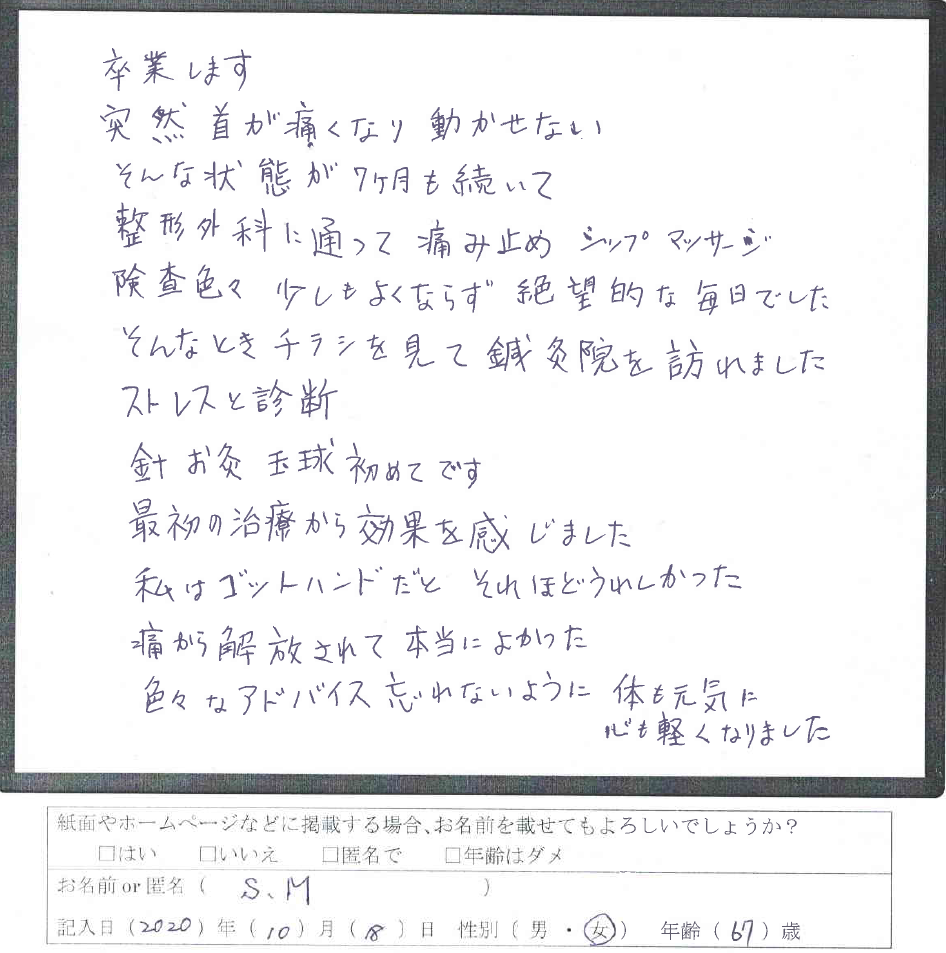 卒業します
突然 首が痛くなり 動かせない
そんな状態が 7ヶ月も続いて
整形外科に通って 痛み止め シップ マッサージ
険査色々 少しもよくならず 絶望的な毎日でした
そんなとき チラシを見て 鍼灸院を訪れました
ストレスと診断
針 お灸 玉球 初めてです
最初の治療から効果を感じました
私はゴットハンドだと それほどうれしかった
痛から解放されて 本当によかった
色々なアドバイス 忘れないように 体も元気に
心も軽くなりました
紙面やホームページなどに掲載する場合、お名前を載せてもよろしいでしょうか？
□はい □いいえ □匿名で □年齢はダメ
お名前 or 匿名（ S.M ）
記入日（2020）年（10）月（18）日 性別（男・女） 年齢（67）歳